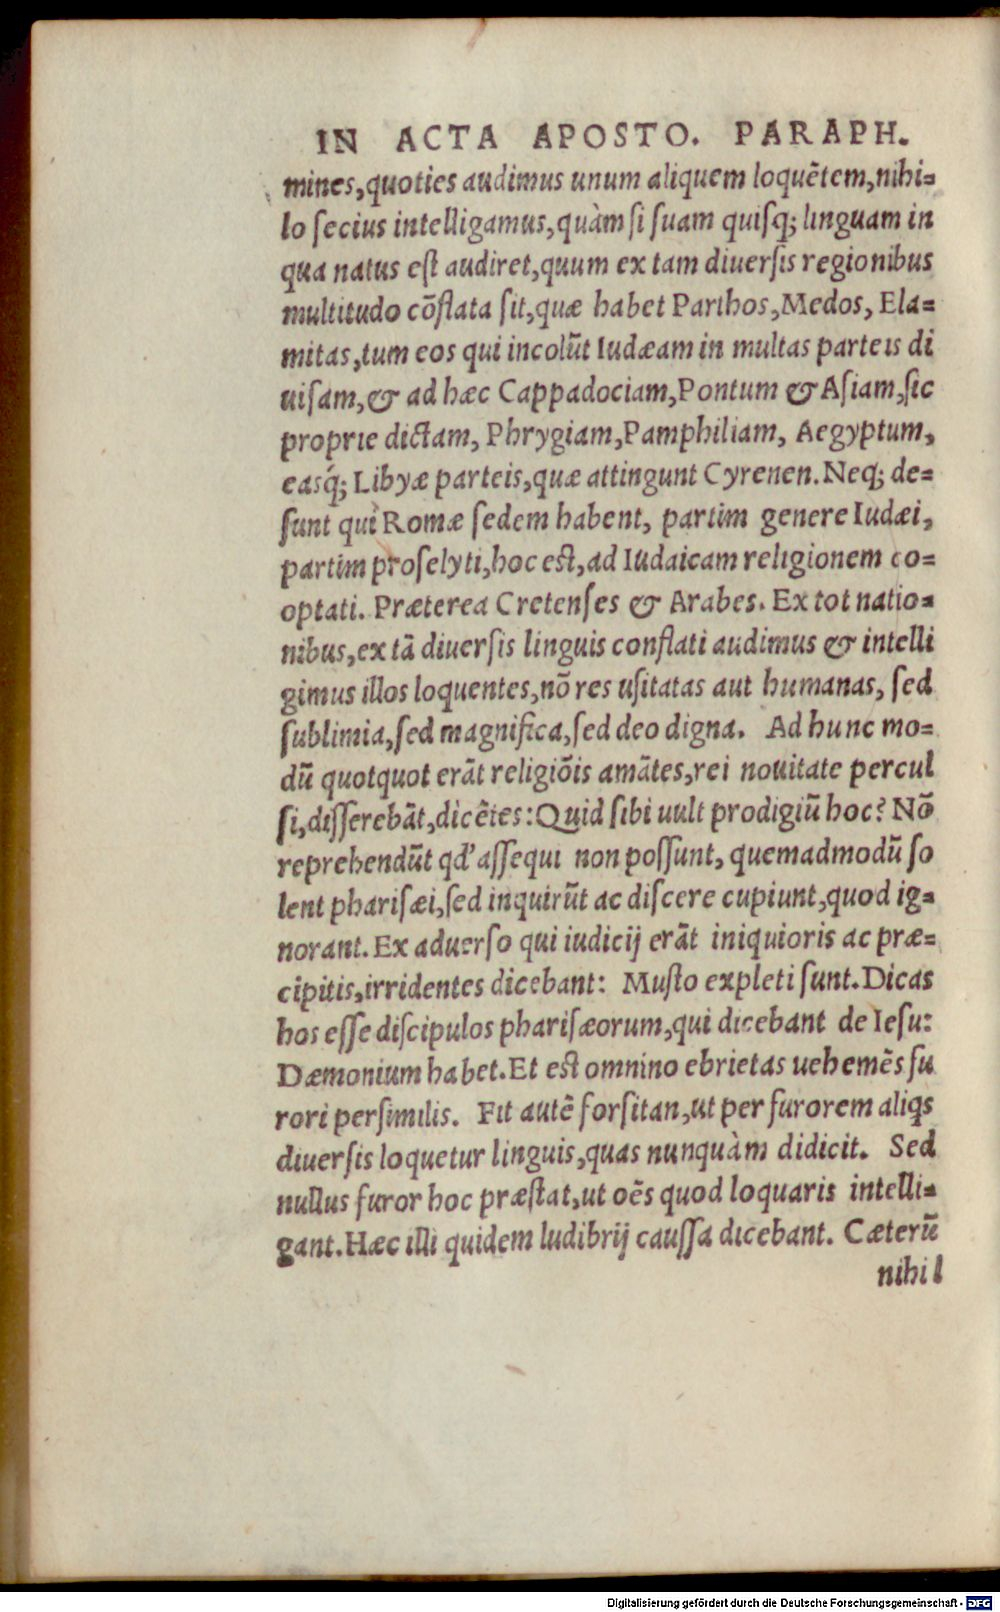 IN ACTA APOSTO. PARAPH.
mines,quoties audimus unum aliquem loquẽtem,nihi=
lo ſecius intelligamus,quàm ſi ſuam quiſq; linguam in
qua natus eſt audiret,quum ex tam diuerſis regionibus
multitudo cõflata ſit,quæ habet Parthos,Medos, Ela=
mitas,tum eos qui incolũt Iudæam in multas parteis di
uiſam,& ad hæc Cappadociam,Pontum & Aſiam,ſic
proprie dictam, Phrygiam,Pamphiliam, Aegyptum,
easq́; Libyæ parteis,quæ attingunt Cyrenen. Neq; de=
ſunt qui Romæ ſedem habent, partim genere Iudæi,
partim proſelyti,hoc eſt,ad Iudaicam religionem co=
optati. Præterea Cretenſes & Arabes. Ex tot natio=
nibus,ex tã diuerſis linguis conflati audimus & intelli
gimus illos loquentes,nõ res uſitatas aut humanas, ſed
ſublimia,ſed magnifica,ſed deo digna. Ad hunc mo=
dũ quotquot erãt religiõis amãtes,rei nouitate percul
ſi,diſſerebãt,dicẽtes:Quid ſibi uult prodigiũ hoc? Nõ
reprehendũt qd' aſſequi non poſſunt, quemadmodũ ſo
lent phariſæi,ſed inquirũt ac diſcere cupiunt,quod ig=
norant. Ex aduerſo qui iudicij erãt iniquioris ac præ=
cipitis,irridentes dicebant: Muſto expleti ſunt. Dicas
hos eſſe diſcipulos phariſæorum,qui dicebant de Ieſu:
Dæmonium habet. Et eſt omnino ebrietas uehemẽs fu
rori perſimilis. Fit autẽ forſitan,ut per furorem aliqs
diuerſis loquetur linguis,quas nunquàm didicit. Sed
nullus furor hoc præſtat,ut oẽs quod loquaris intelli=
gant. Hæc illi quidem ludibrij cauſſa dicebant. Cæterũ
nihil
Digitalisierung gefördert durch die Deutsche Forschungsgemeinschaft - DFG